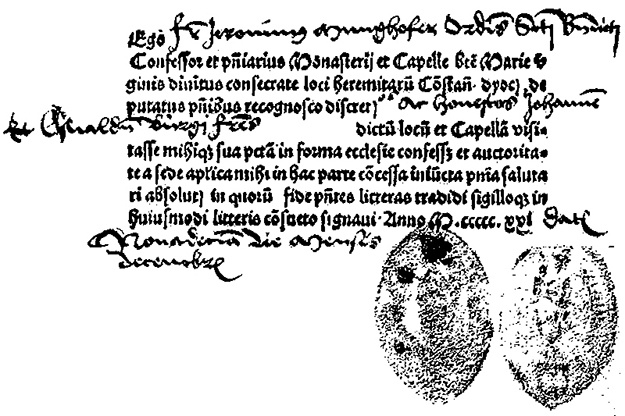 Ego fr Jeronimus Munghofer Ordīs Scti Bn̄dicti
Confessor et pn̄iarius Monasterij et Capelle btē Marie v
ginis diuitus consecrate loci heremitarū Cōstan̄. dyoc̄. de
putatus pn̄ibus recognosco discret) os ac honestos Johannē
et Oswaldū Burgi fr̄es dictū locū et Capellā visi-
tasse mihiq; sua pctā in forma ecclesie confessz et auctorita-
te a sede aplica mihi in hac parte cōcessa iniūcta pn̄ia saluta
ri absolut) in quorū fide pn̄tes litteras tradidi sigilloqz in
huiusmodi litteris cōsueto signaui. Anno M.ccccc.xxi dat
Nonadecīa die Mensis
decembrȝ